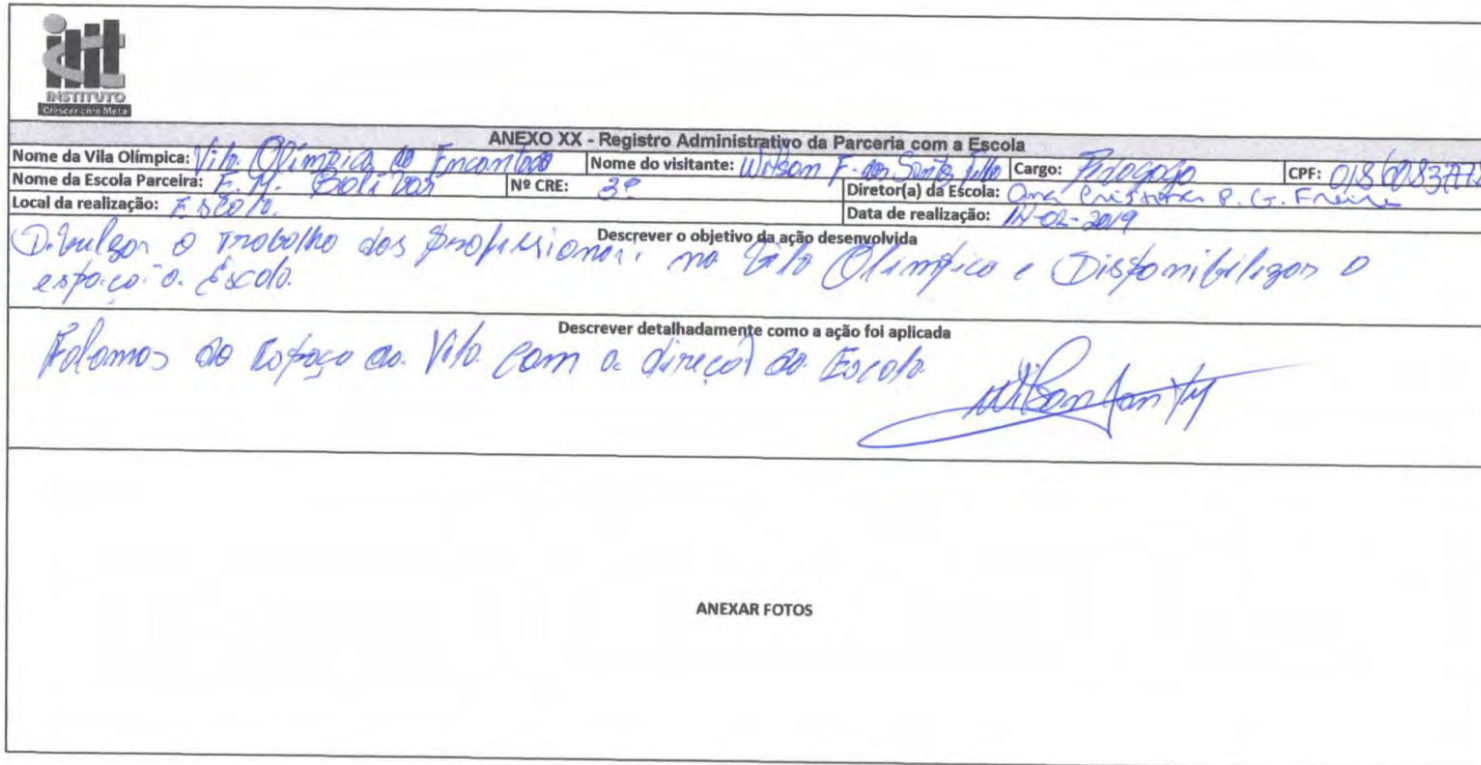 INSTITUTO
Crescer com Meta
ANEXO XX - Registro Administrativo da Parceria com a Escola
Nome da Vila Olímpica: Vila Olímpica do Encantado Nome do visitante: Wilson F. dos Santos Filho Cargo: Pedagogo CPF:
Nome da Escola Parceira: E. M. Bolivar Nº CRE: 3ª Diretor(a) da Escola: Ana Cristina P. G. Freire
Local da realização: Escola. Data de realização: -02-2019
Descrever o objetivo da ação desenvolvida
Divulgar o trabalho dos profissionais na Vila Olímpica e Disponibilizar o
espaço a Escola.
Descrever detalhadamente como a ação foi aplicada
Falamos do Espaço da Vila com a direção da Escola
ANEXAR FOTOS